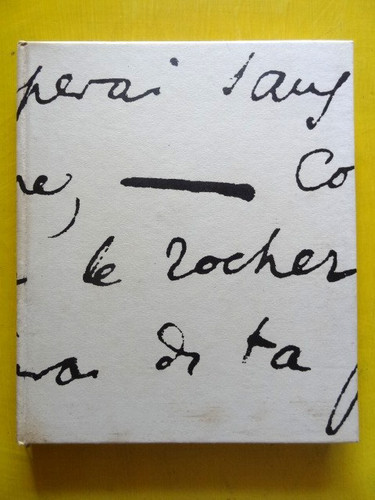 perai sans
ne, — Co
le rocher
rai de ta p